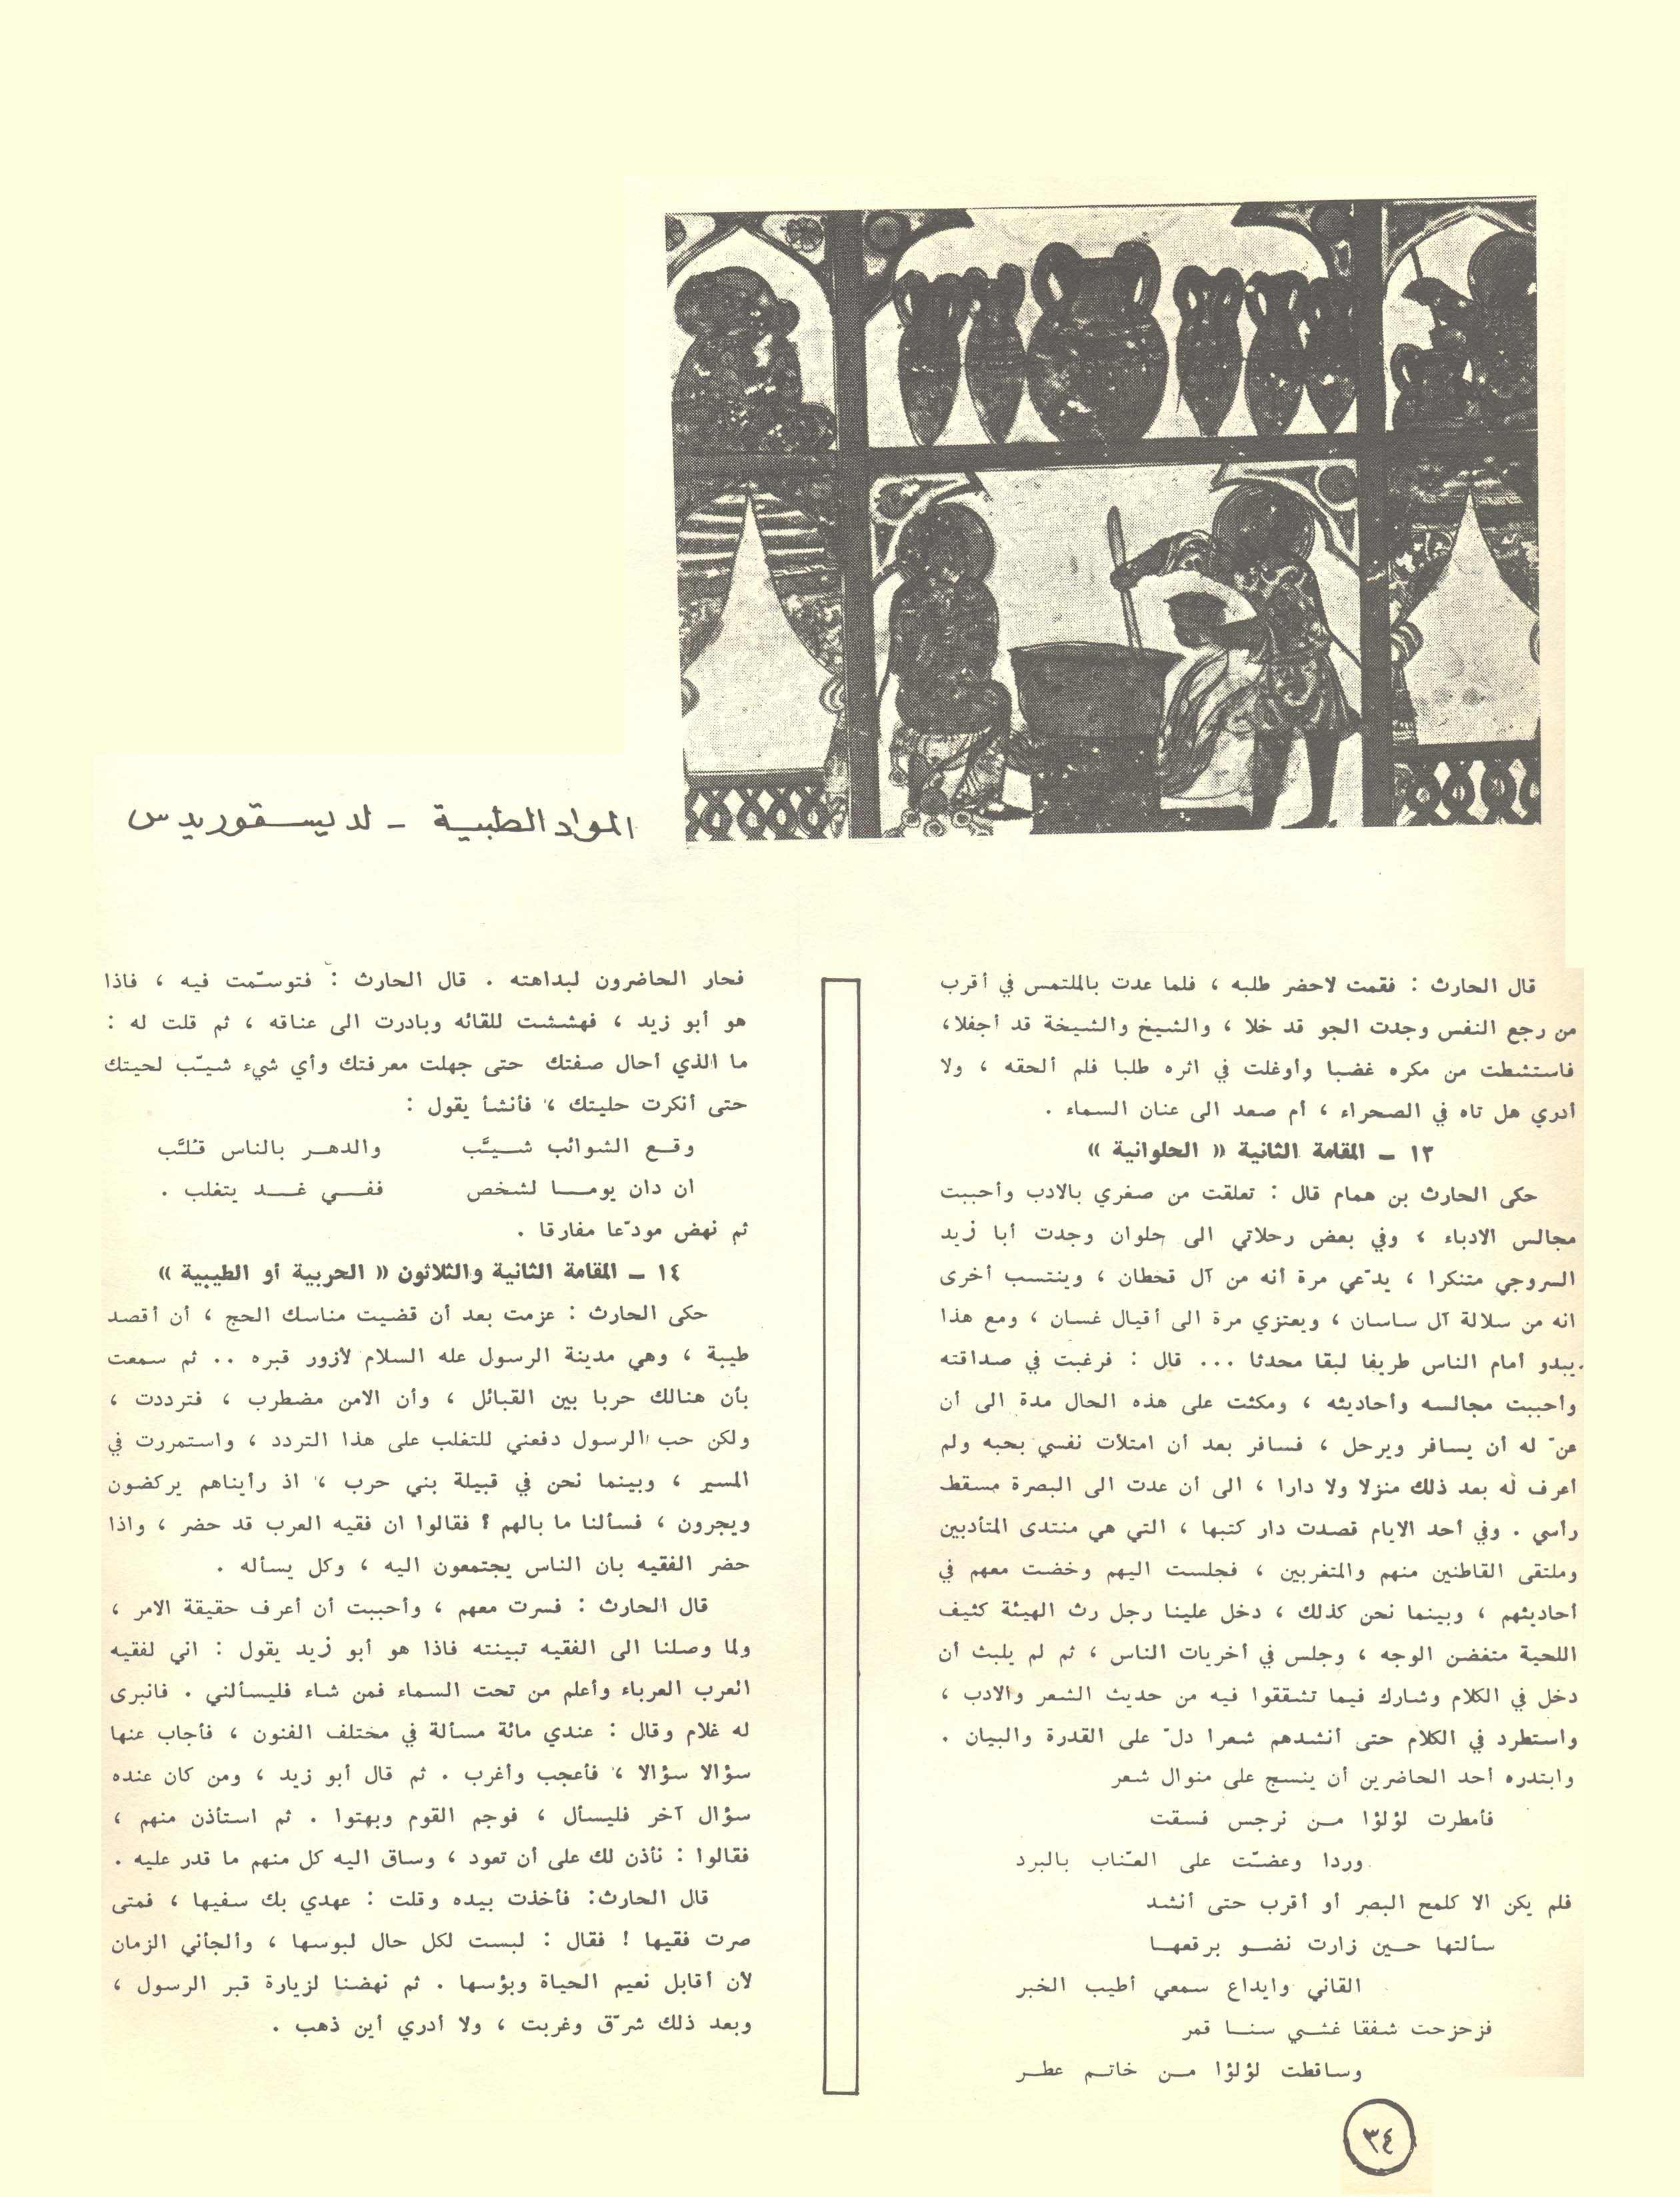 المواد الطبية - لديسقوريدس
قال الحارث : فقمت لاحضر طلبه ، فلما عدت بالملتمس في أقرب
من رجع النفس وجدت الجو قد خلا ، والشيخ والشيخة قد أجفلا،
فاستشطت من مكره غضبا وأوغلت في اثره طلبا فلم ألحقه ، ولا
أدري هل تاه في الصحراء ، أم صعد الى عنان السماء .
١٣ - المقامة الثانية « الحلوانية »
حكى الحارث بن همام قال : تعلقت من صغري بالادب وأحببت
مجالس الادباء ، وفي بعض رحلاتي الى حلوان وجدت أبا زيد
السروجي متنكرا ، يدّعي مرة أنه من آل قحطان ، وينتسب أخرى
انه من سلالة آل ساسان ، ويعتزي مرة الى أقيال غسان ، ومع هذا
يبدو أمام الناس ظريفا لبقا محدثا ... قال : فرغبت في صداقته
وأحببت مجالسه وأحاديثه ، ومكثت على هذه الحال مدة الى أن
عنّ له أن يسافر ويرحل ، فسافر بعد أن امتلأت نفسي بحبه ولم
أعرف له بعد ذلك منزلا ولا دارا ، الى أن عدت الى البصرة مسقط
رأسي . وفي أحد الايام قصدت دار كتبها ، التي هي منتدى المتأدبين
وملتقى القاطنين منهم والمتغربين ، فجلست اليهم وخضت معهم في
أحاديثهم ، وبينما نحن كذلك ، دخل علينا رجل رث الهيئة كثيف
اللحية متغضن الوجه ، وجلس في أخريات الناس ، ثم لم يلبث أن
دخل في الكلام وشارك فيما تشققوا فيه من حديث الشعر والادب ،
واستطرد في الكلام حتى أنشدهم شعرا دلّ على القدرة والبيان .
وابتدره أحد الحاضرين أن ينسج على منوال شعر
فأمطرت لؤلؤا مـن نرجس فسقت
وردا وعضّت على العنّاب بالبرد
فلم يكن الا كلمح البصر أو أقرب حتى أنشد
سألتها حـين زارت نضـو برقعهـا
القاني وايداع سمعي أطيب الخبر
فزحزحت شفقا غشـي سنـا قمر
وساقطت لؤلؤا مـن خاتـم عطـر
فحار الحاضرون لبداهته . قال الحارث : فتوسّمت فيه ، فاذا
هو أبو زيد ، فهششت للقائه وبادرت الى عناقه ، ثم قلت له :
ما الذي أحال صفتك حتى جهلت معرفتك وأي شيء شيّب لحيتك
حتى أنكرت حليتك ، فأنشأ يقول :
وقـع الشوائب شـيـَّب والدهـر بالناس قـُلـَّب
ان دان يومـا لشخص ففـي غـد يتغلب .
ثم نهض مودّعا مفارقا .
١٤ - المقامة الثانية والثلاثون « الحربية أو الطيبية »
حكى الحارث : عزمت بعد أن قضيت مناسك الحج ، أن أقصد
طيبة ، وهي مدينة الرسول عله السلام لأزور قبره .. ثم سمعت
بأن هنالك حربا بين القبائل ، وأن الامن مضطرب ، فترددت ،
ولكن حب الرسول دفعني للتغلب على هذا التردد ، واستمررت في
المسير ، وبينما نحن في قبيلة بني حرب ، اذ رأيناهم يركضون
ويجرون ، فسألنا ما بالهم ؟ فقالوا ان فقيه العرب قد حضر ، واذا
حضر الفقيه بان الناس يجتمعون اليه ، وكل يسأله .
قال الحارث : فسرت معهم ، وأحببت أن أعرف حقيقة الامر ،
ولما وصلنا الى الفقيه تبينته فاذا هو أبو زيد يقول : اني لفقيه
العرب العرباء وأعلم من تحت السماء فمن شاء فليسألني . فانبرى
له غلام وقال : عندي مائة مسألة في مختلف الفنون ، فأجاب عنها
سؤالا سؤالا ، فأعجب وأغرب . ثم قال أبو زيد ، ومن كان عنده
سؤال آخر فليسأل ، فوجم القوم وبهتوا . ثم استأذن منهم ،
فقالوا : نأذن لك على أن تعود ، وساق اليه كل منهم ما قدر عليه .
قال الحارث: فأخذت بيده وقلت : عهدي بك سفيها ، فمتى
صرت فقيها ! فقال : لبست لكل حال لبوسها ، وألجأني الزمان
لأن أقابل نعيم الحياة وبؤسها . ثم نهضنا لزيارة قبر الرسول ،
وبعد ذلك شرّق وغربت ، ولا أدري أين ذهب .
٣٤